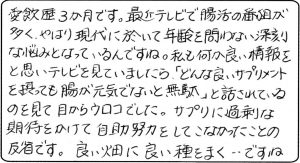 愛飲歴3か月です。最近テレビで腸活の番組が
多く、やはり現代に於いて年齢を問わない深刻
な悩みとなっているんですね。私も何か良い情報を
と思いテレビを見ていましたら「どんな良いサプリメント
を摂っても腸が元気でないと無駄」と話されている
のを見て目からウロコでした。サプリに過剰な
期待をかけて自助努力をしてこなかったことの
反省です。良い畑に良い種をまく…ですね